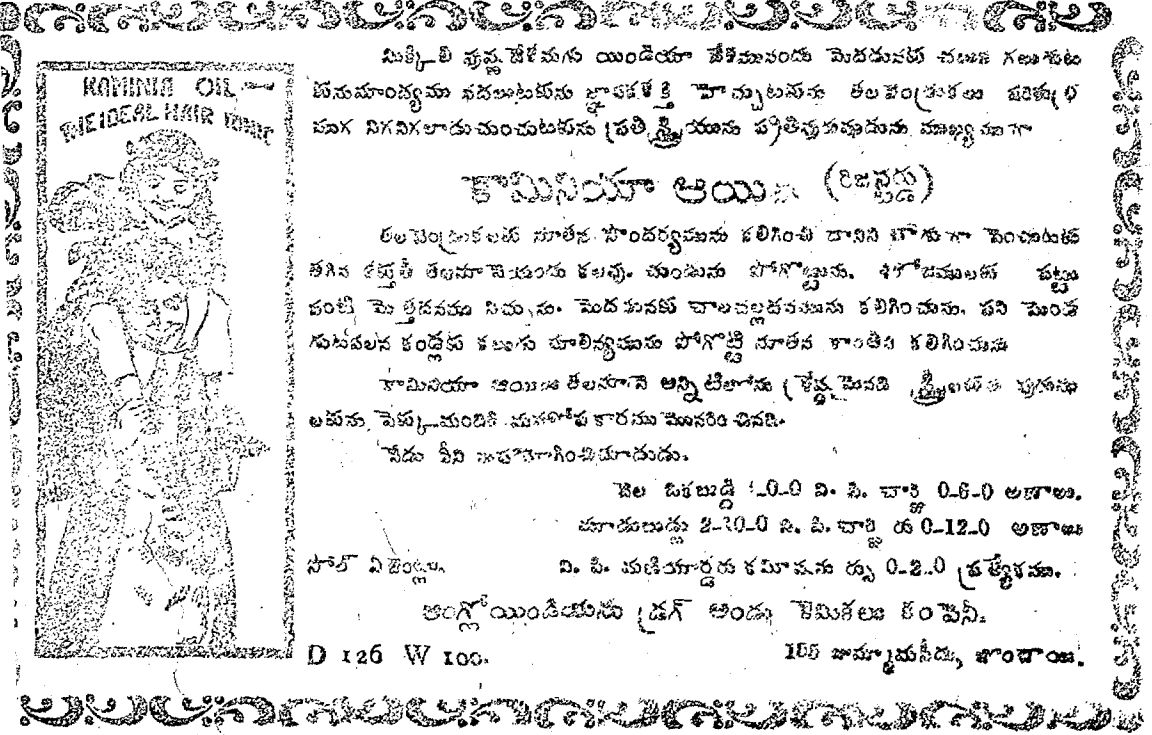 KAMINIA OIL
THE IDEAL HAIR TONIC
మిక్కిలి వుష్ణ దేశమగు యిండియా దేశమునందు మెదడునకు చలువ గలుగుట
కును మాంద్యము వదలుటకును జ్ఞాపకశక్తి హెచ్చుటకును తలవెంద్రుకలు
నిగనిగలాడుచుంచుటకును ప్రతి స్త్రీయును ప్రతిపురుషుడును ముఖ్యముగా
కామినియా ఆయిల్ (రిజస్టర్డు)
తలవెంద్రుకలకు నూతన సౌందర్యమును కలిగించి దానిని బాగుగా పెంచుటకు
తగిన శక్తి తలనూనెయందు కలవు. చుండును పోగొట్టును. శిరోజములకు పట్టు
వంటి మెత్తదనము నిచ్చును. మెదడునకు చాలచల్లదనమును కలిగించును. పని
గుటవలన కండ్లకు కలుగు మాలిన్యమును పోగొట్టి నూతన కాంతిని కలిగించును
కామినియా ఆయిలు తలనూనె అన్నిటిలోను శ్రేష్ఠమైనది స్త్రీలకును పురుషు
లకును పెక్కుమందికి మహోపకారము మొనరించినది.
నేడు దీని నుపయోగించిచూడుడు.
వెల ఒకబుడ్డి 1-0-0 వి. పి. చార్జి 0-6-0 అణాలు.
మూడుబుడ్లు 2-10-0 వి. పి. చార్జి రు 0-12-0 అణాలు
సోల్ ఏజెంట్లు. వి. పి. మణియార్డరు కమీషను ర్పు 0-2-0 ప్రత్యేకము.
ఆంగ్లోయిండియను డ్రగ్ అండు కెమికలు కంపెనీ.
D 126 W 100. 155 జుమ్మామసీదు, బొంబాయి.